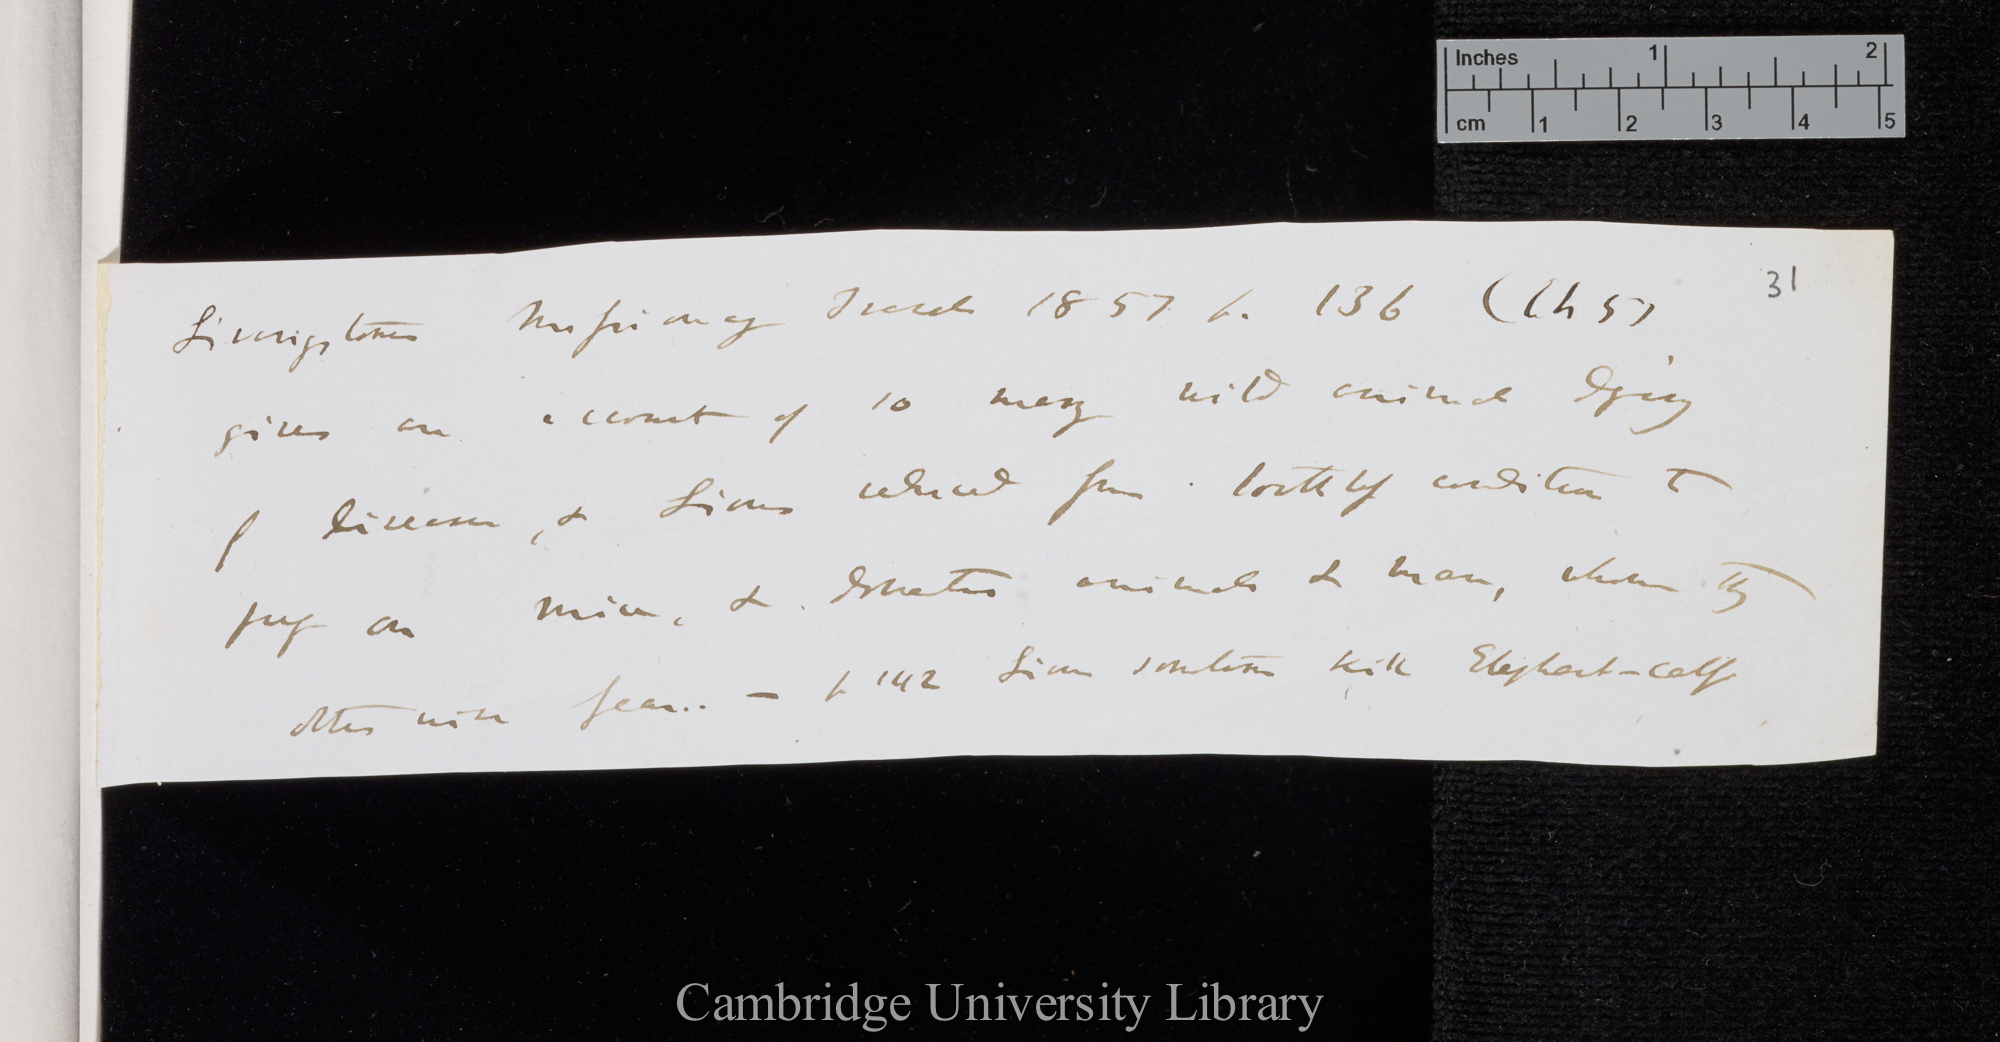 Inches 1 2
cm 1 2 3 4 5
31
Livingstone Missionary Travels 1857 p. 136 (Ch 5)
gives an account of so many wild animals dying
of disease, & Lions reduced from condition to
prey on mice, & domestic animals & man, whom they
otherwise fear.. — p 142 Lions sometimes kill Elephant-calf
Cambridge University Library